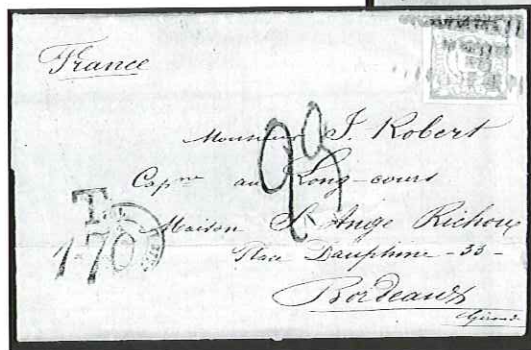 France
Monsieur J. Robert
Cap.ne au Long-cours
Maison St Ange Richoux
Place Dauphine - 33 -
Bordeaux
Gironde
T.
1-70
23